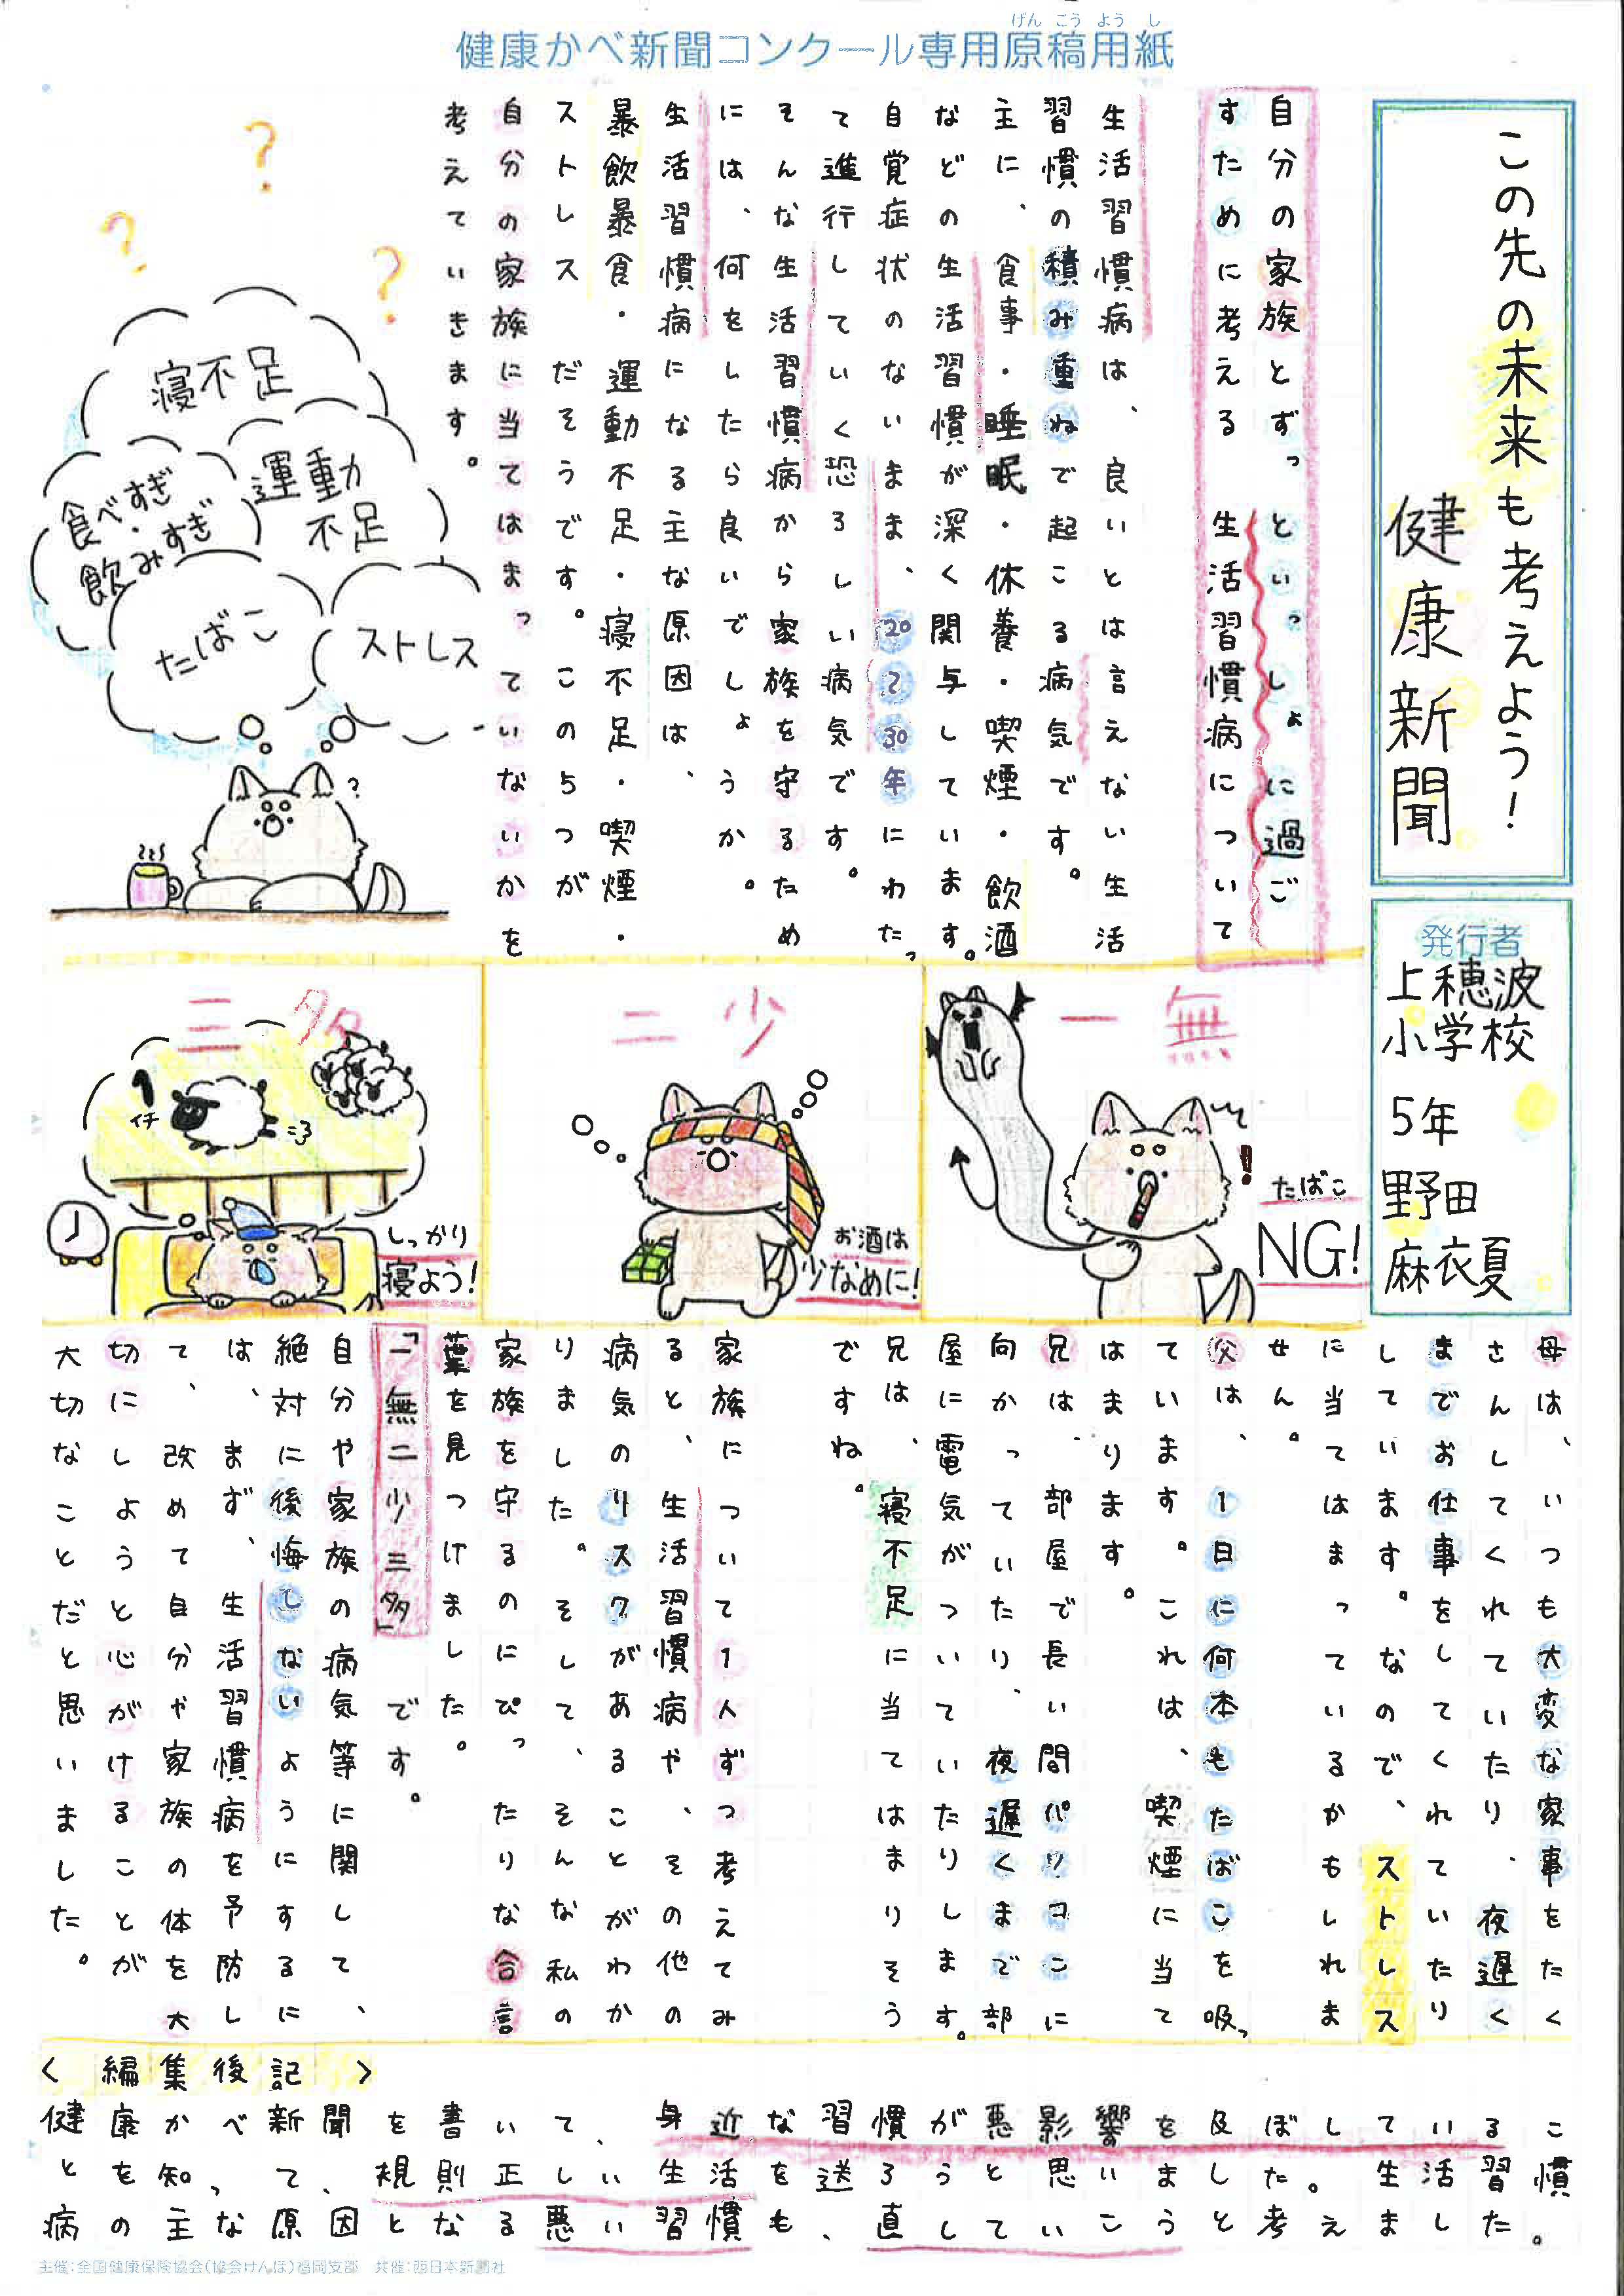 げんこうようし
健康かべ新聞コンクール専用原稿用紙
この先の未来も考えよう！
健康新聞
発行者
上穂波
小学校
5年
野田
麻衣夏
自分の家族とずっといっしょに過ご
すために考える生活習慣病について
生活習慣病は、良いとは言えない生活
習慣の積み重ねで起こる病気です。
主に、食事・睡眠・休養・喫煙・飲酒
などの生活習慣が深く関与しています。
自覚症状のないまま、20〜30年にわたっ
て進行していく恐ろしい病気です。
そんな生活習慣病から家族を守るため
には、何をしたら良いでしょうか。
生活習慣病になる主な原因は、
暴飲暴食・運動不足・寝不足・喫煙・
ストレスだそうです。この5つが
自分の家族に当てはまっていないかを
考えていきます。
?
?
?
寝不足
運動
不足
食べすぎ
・
飲みすぎ
たばこ
ストレス
?
一無
!
たばこ
NG!
二少
お酒は
少なめに!
三多
1
イチ
しっかり
寝よう!
母は、いつも大変な家事をたく
さんしてくれていたり、夜遅く
までお仕事をしてくれていたり
しています。なのでストレス
に当てはまっているかもしれま
せん。
父は、1日に何本もたばこを吸っ
ています。これは、喫煙に当て
はまります。
兄は、部屋で長い間パソコンに
向かっていたり、夜遅くまで部
屋に電気がついていたりします。
兄は、寝不足に当てはまりそう
ですね。
家族について1人ずつ考えてみ
ると、生活習慣病や、その他の
病気のリスクがあることがわか
りました。そして、そんな私の
家族を守るのにぴったりな合言
葉を見つけました。
「一無二少三多」です。
自分や家族の病気等に関して、
絶対に後悔しないようにするに
は、まず、生活習慣病を予防し
て、改めて自分や家族の体を大
切にしようと心がけることが
大切なことだと思いました。
〈編集後記〉
健康かべ新聞を書いて、身近な習慣が悪影響を及ぼしているこ
とを知って、規則正しい生活を送ろうと思いました。生活習慣
病の主な原因となる悪い習慣も、直していこうと考えました。
主催：全国健康保険協会（協会けんぽ）福岡支部　共催：西日本新聞社